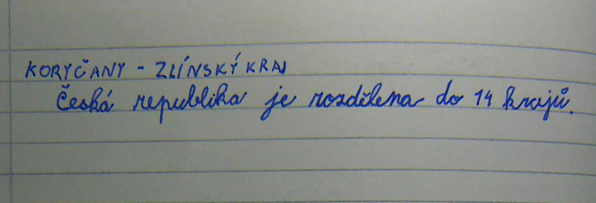 KORYČANY - ZLÍNSKÝ KRAJ
Česká republika je rozdělena do 14 krajů.